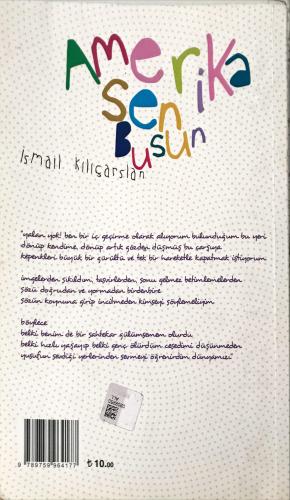 Amerika
Sen
Busun
İsmail Kılıçarslan
"yalan yok! ben bir iç geçirme olarak alıyorum bulunduğum bu yeri
dönüp kendime, dönüp artık gözden düşmüş bu çarşıya
kepenkleri büyük bir gürültü ve tek bir hareketle kapatmak istiyorum
imgelerden sıkıldım, tasvirlerden, sonu gelmez betimlemelerden
sözü doğrudan ve yormadan birdenbire
sözün koynuna girip incitmeden kimseyi söylemeliyim
böylece
belki benim de bir sahtekar gülümsemem olurdu
belki hızlı yaşayıp belki genç ölürdüm cesedimi düşünmeden
yusufun sevdiği yerlerinden sermeyi öğrenirdim dünyamızı"
9 789759 964177
₺ 10.00